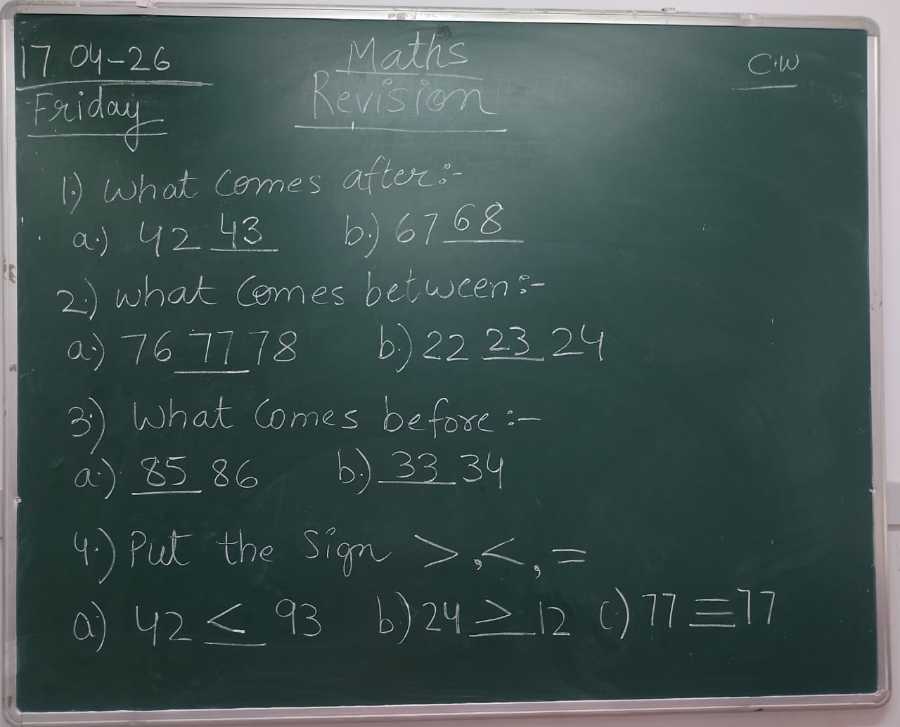 17 04-26 Maths C.W
Friday Revision
1.) What comes after:-
a.) 42 43 b.) 67 68
2.) What comes between:-
a.) 76 77 78 b.) 22 23 24
3.) What comes before:-
a.) 85 86 b.) 33 34
4.) Put the Sign >, <, =
a) 42 < 93 b) 24 > 12 c) 77 = 77